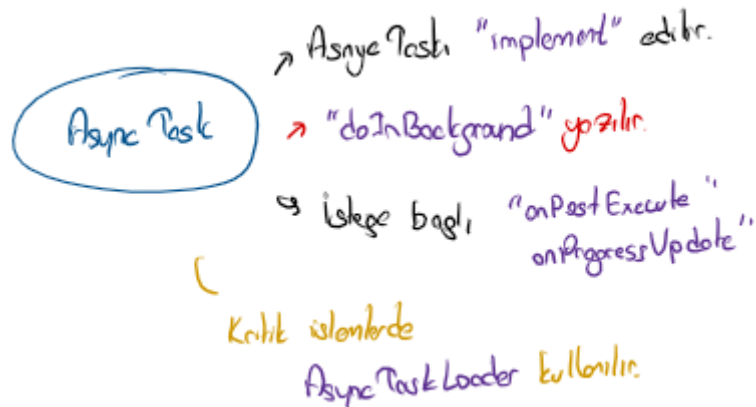 Async Task
Asnyc Taskı "implement" edilir.
"doInBackground" yazılır.
isteğe bağlı "onPostExecute"
onProgressUpdate"
Kritik işlemlerde
AsyncTaskLoader kullanılır.